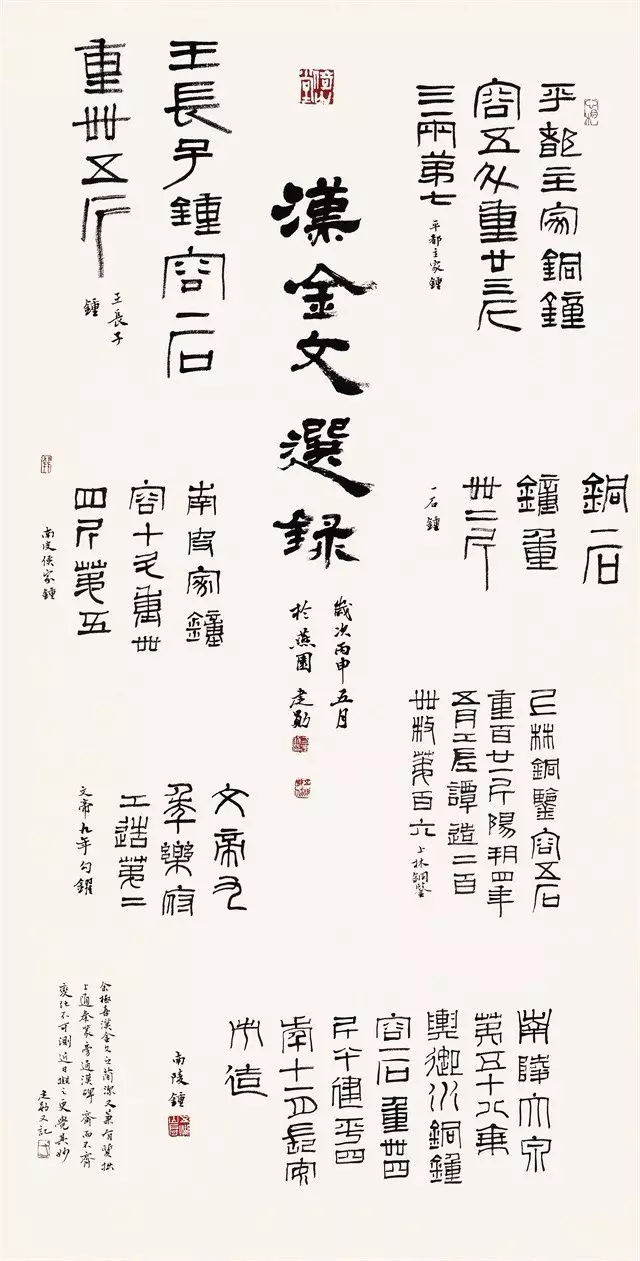 漢金文選録
歲次丙申五月
於燕園建勛
平都主家銅鐘
容五斗重廿三斤
三兩第七
平都主家鍾
王長子鍾容二石
重卌五斤
王長子
鍾
銅一石
鐘重
卌二斤
一石鍾
南皮家鐘
容十斗重卌
四斤第五
南皮侯家鍾
上林銅鑒容五石
重百廿一斤陽朔四年
五月工長譚造二百
卌枚第百六
上林銅鑒
文帝九
年樂府
工造第二
文帝九年勾鑃
南陵大泉
第五十八乘
輿御水銅鐘
容一石重卌四
斤半建平四
年十一月長安
造
南陵鍾
余極喜漢金文之簡潔又兼有質拙
上通秦篆旁通漢碑齊而不齊
變化不可測近日撫之更覺其妙
建勛又記